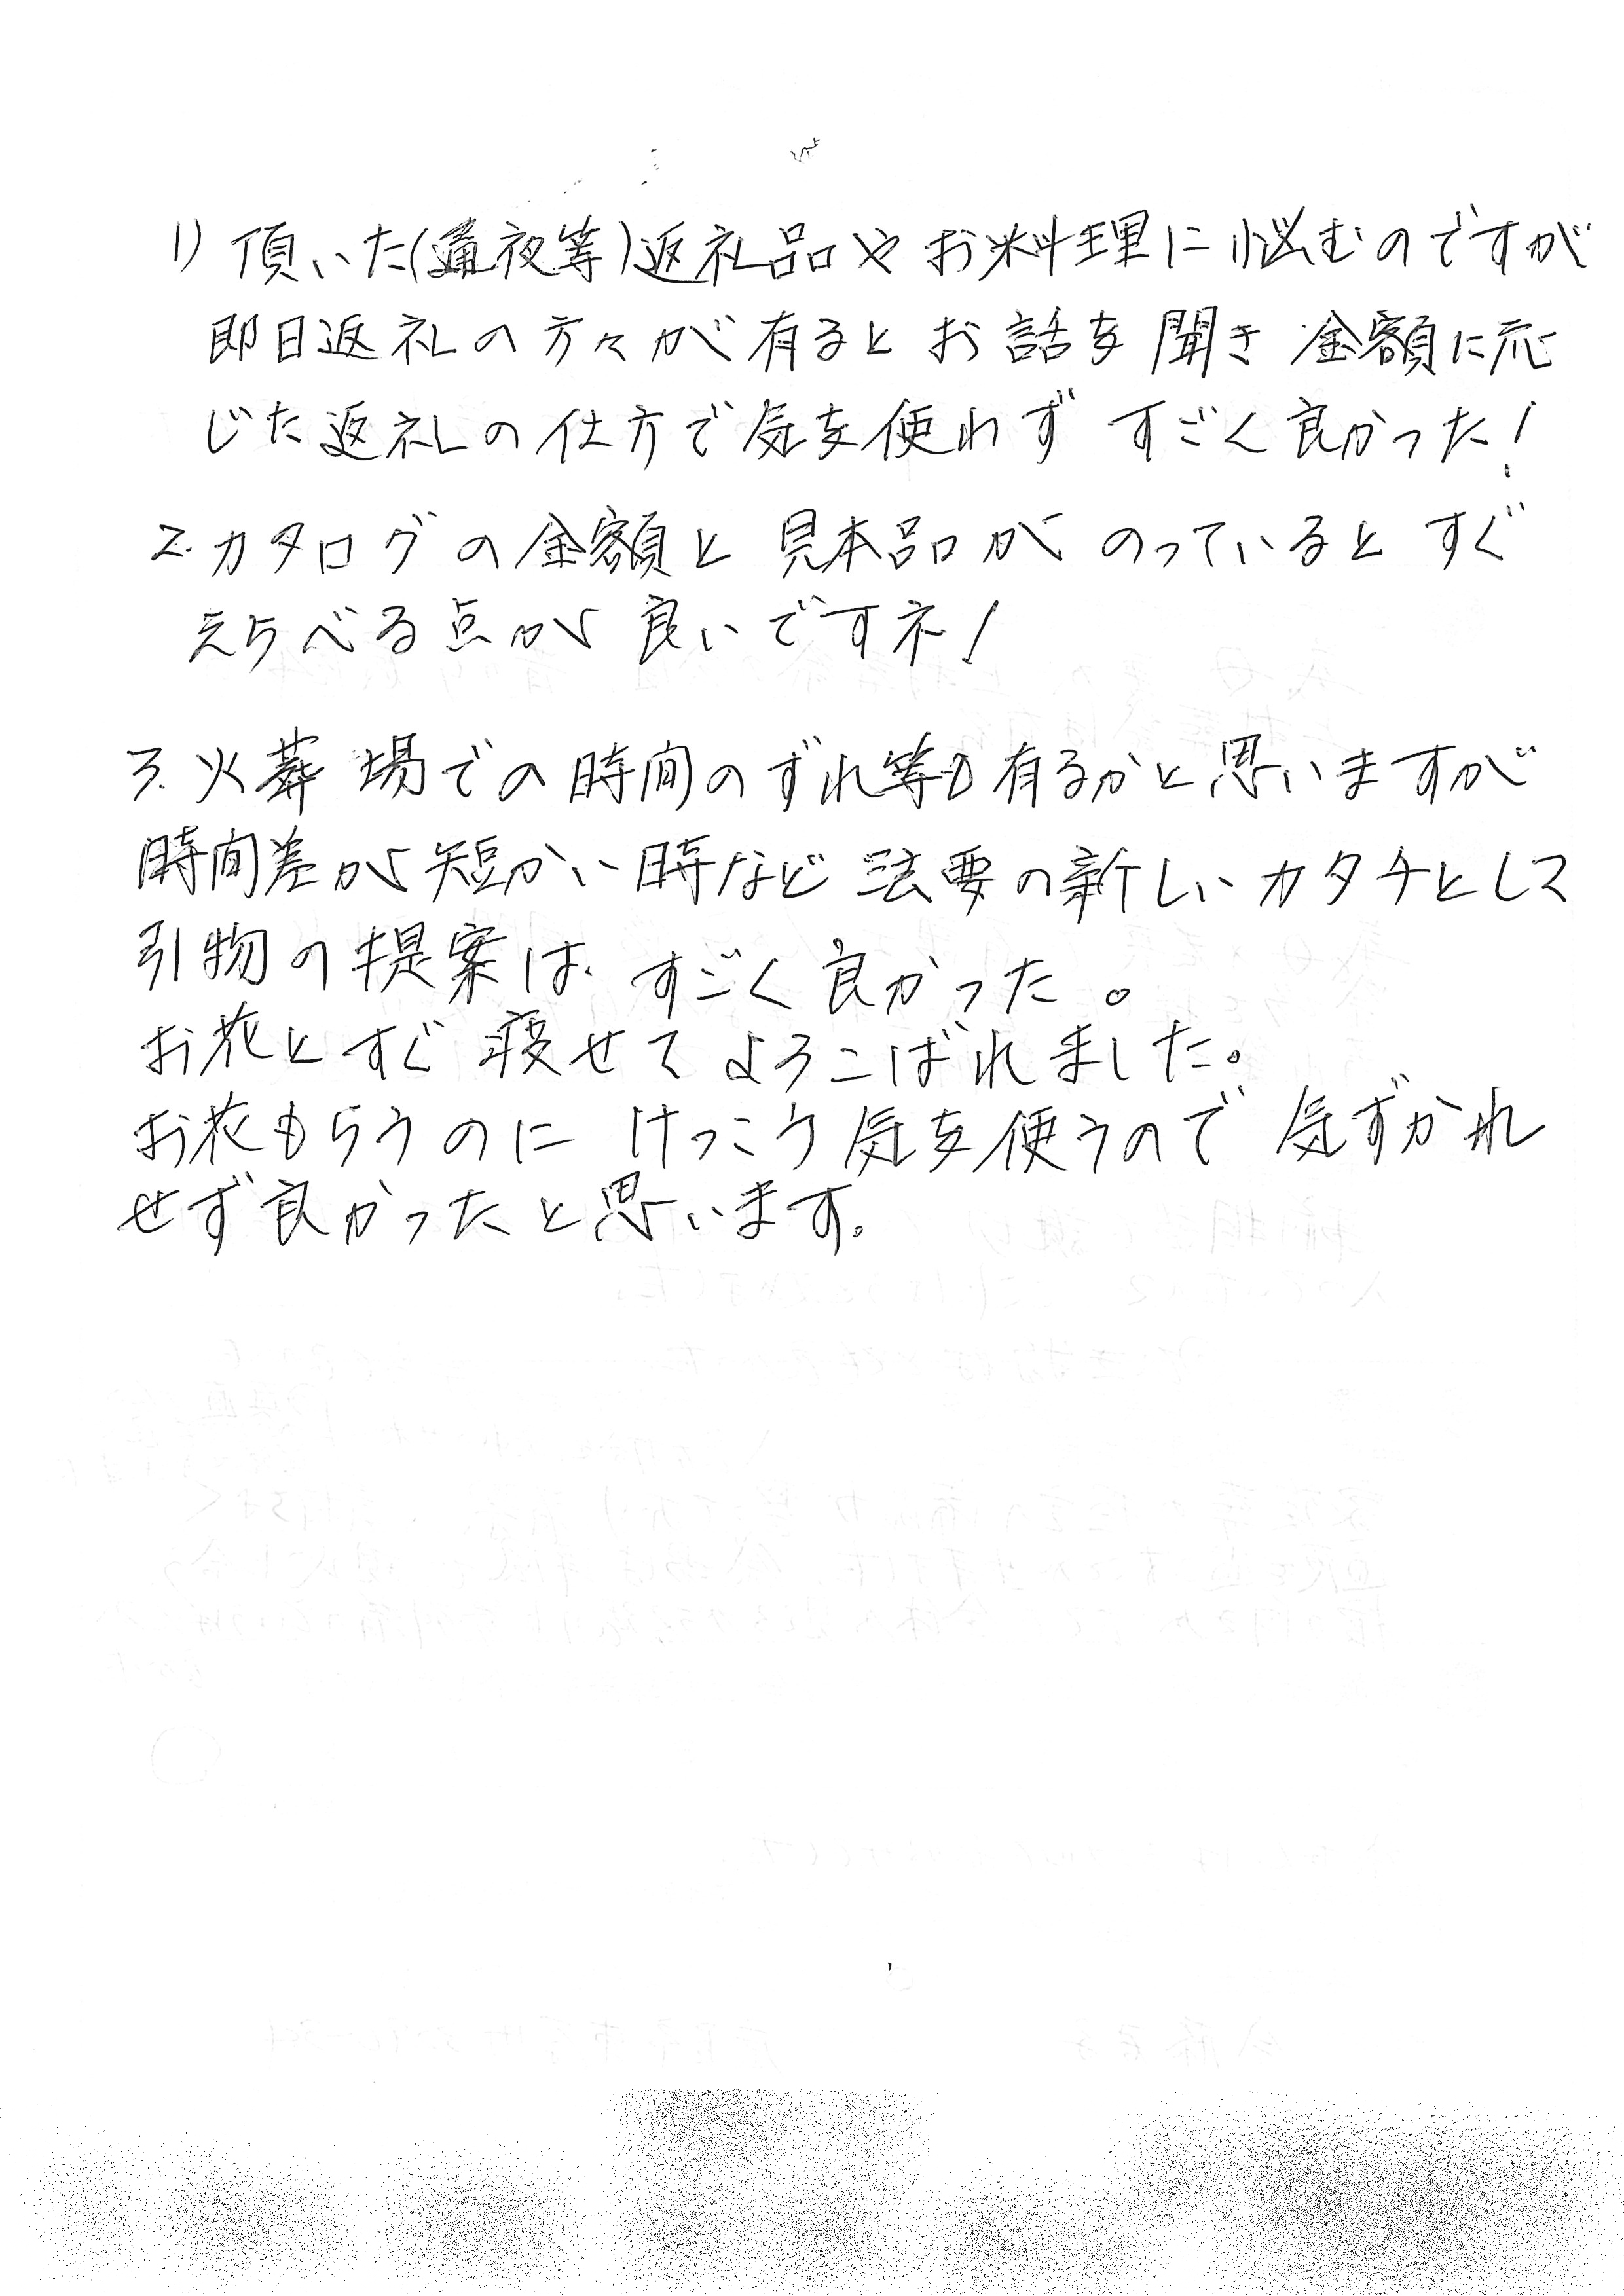 1) 頂いた(通夜等)返礼品やお料理に悩むのですが
即日返礼の方々が有るとお話を聞き 金額に応
じた返礼の仕方で気を使わず すごく良かった!
2. カタログの金額と見本品が のっているとすぐ
えらべる点が良いですネ!
3. 火葬場での時間のずれ等も有るかと思いますが
時間差が短かい時など 法要の新しいカタチとして
引物の提案は すごく良かった。
お花とすぐ 寝せて よろこばれました。
お花もらうのに けっこう気を使うので 気ずかれ
せず良かったと思います。